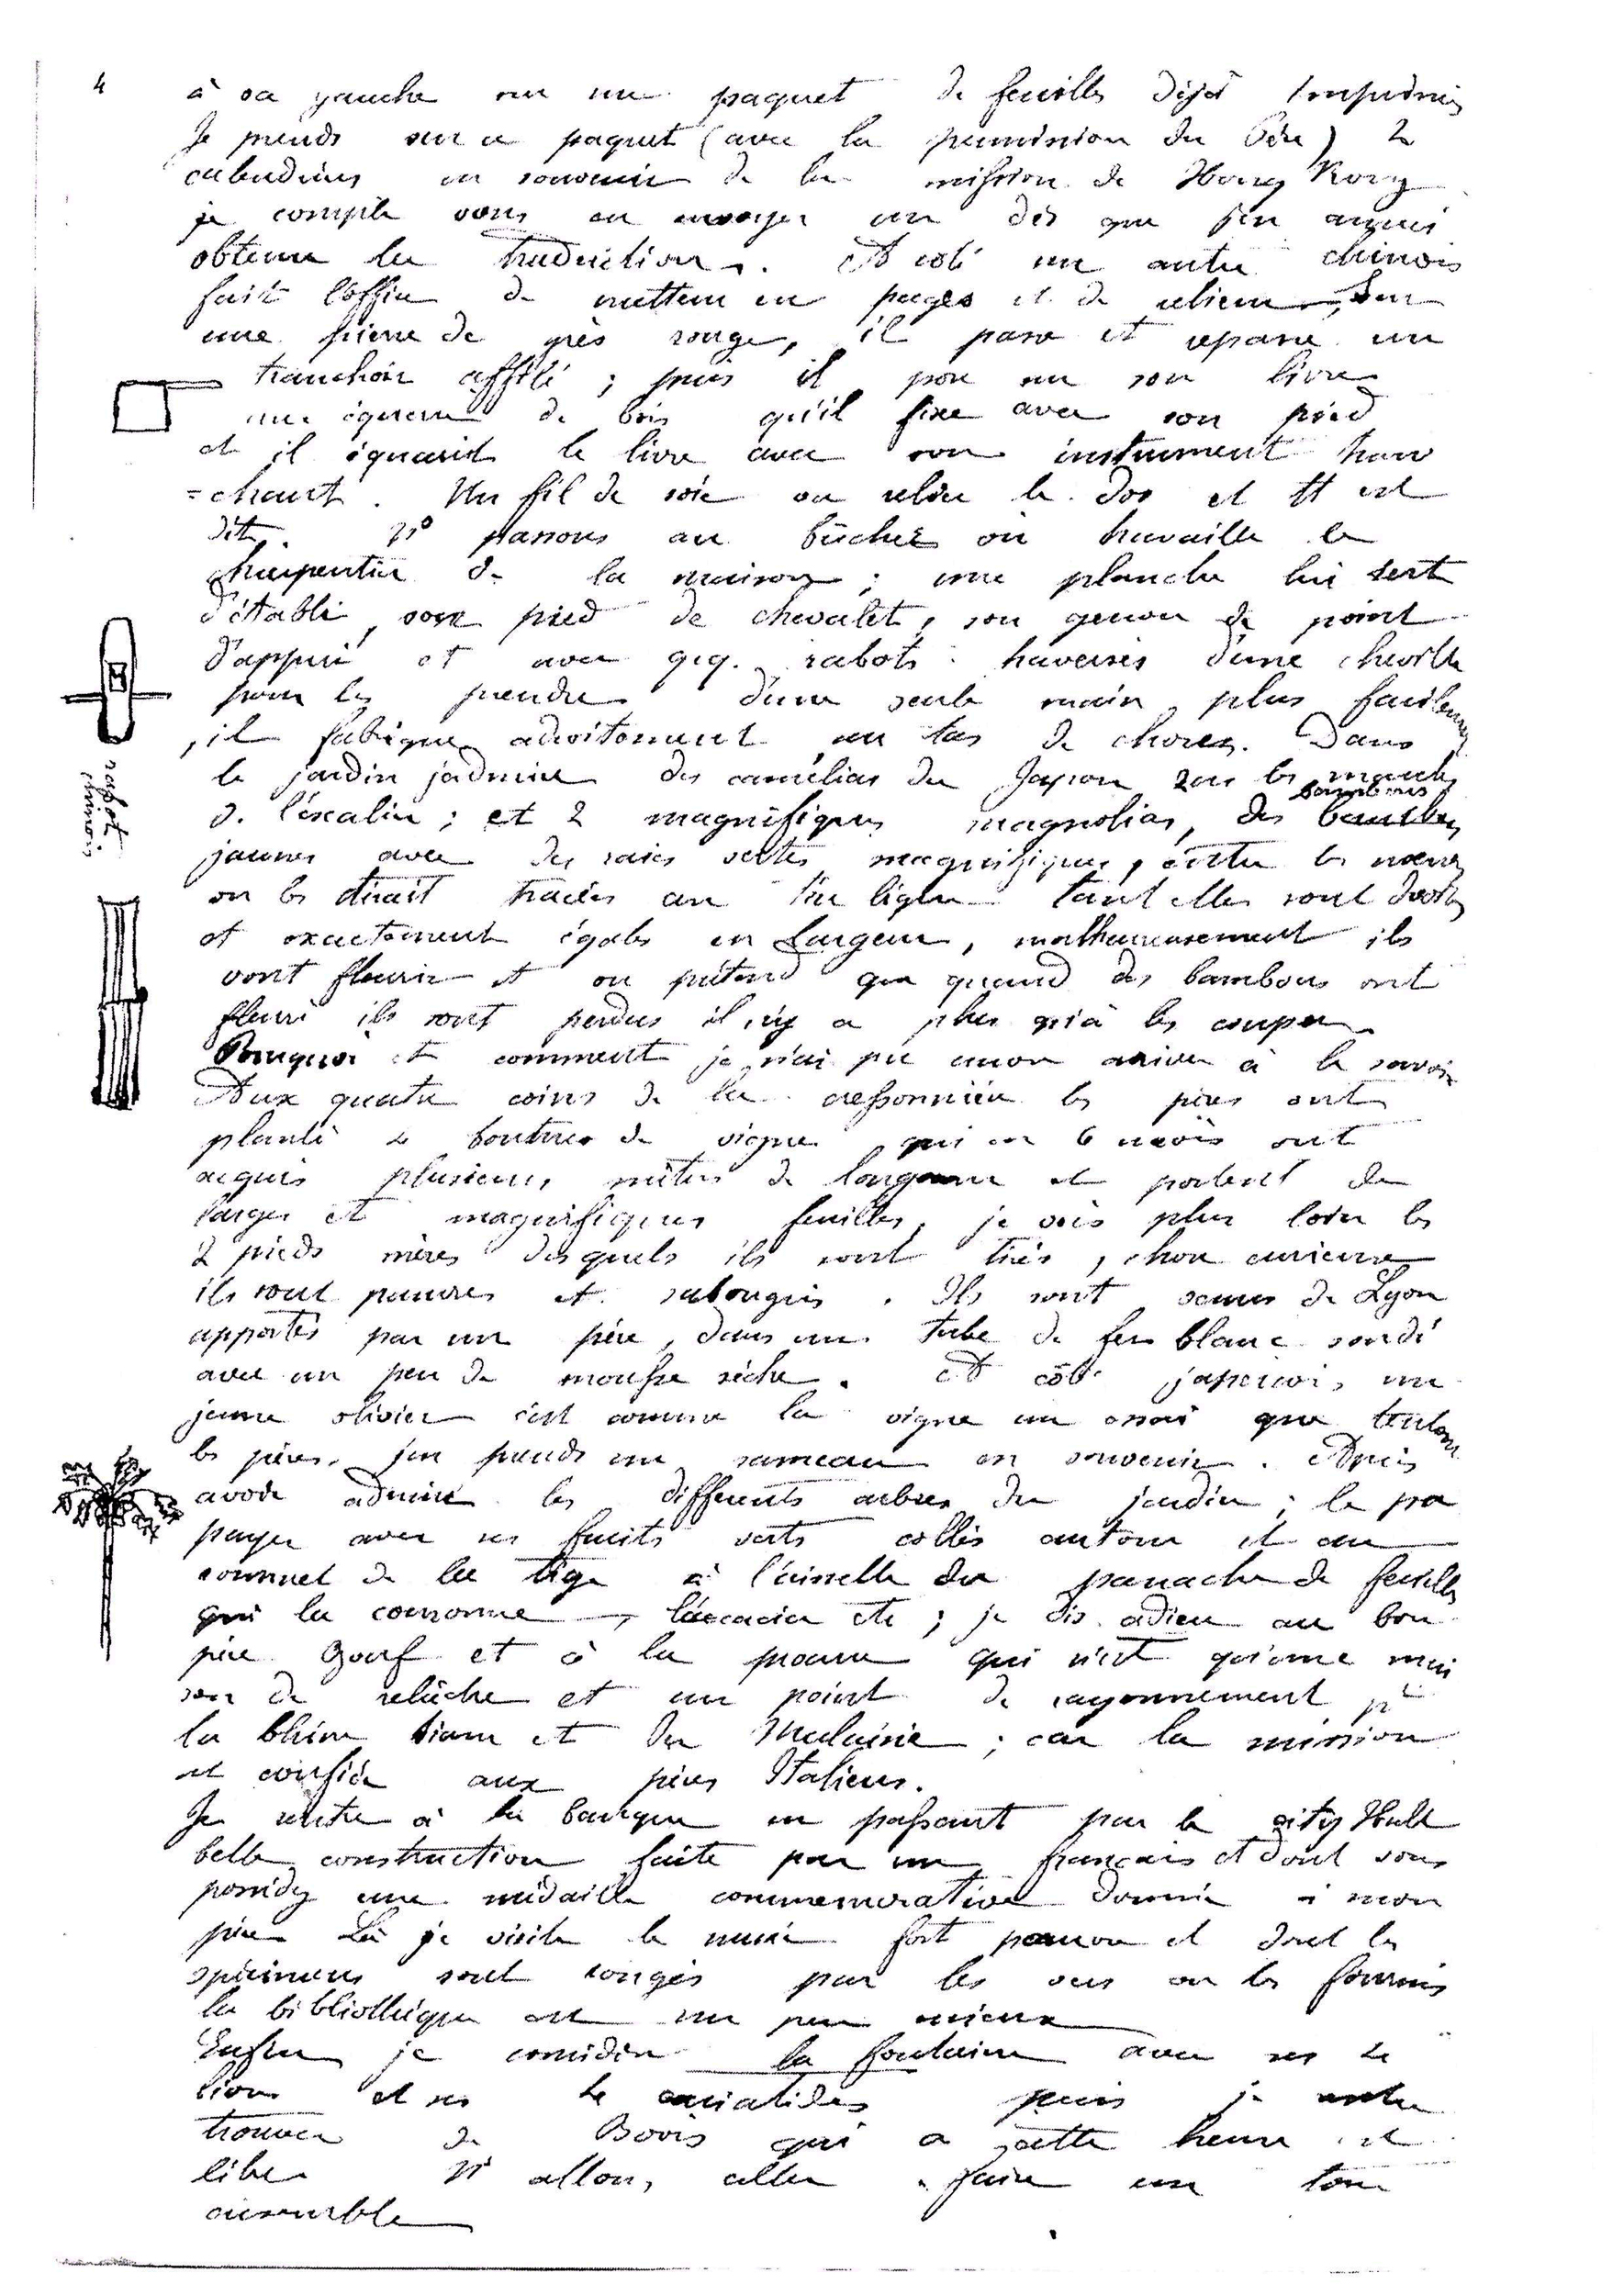 4
à sa gauche sur un paquet de feuilles déjà imprimées
Je prends sur ce paquet (avec la permission du Père) 2
calendriers en souvenir de la mission de Hong Kong
je compte vous en envoyer un dès que j'en aurai
obtenu la traduction. A coté un autre chinois
fait l'office de metteur en pages et de relieur, sur
une pierre de grès rouge, il passe et repasse un
tranchoir affilé ; puis il pose sur son livre
une équerre de bois qu'il fixe avec son pied
et il équarrit le livre avec son instrument tran
=chant. Un fil de soie en relie le dos et tt est
dit. Ns passons au bûcher où travaille le
charpentier de la maison ; une planche lui sert
d'établi, son pied de chevalet, son genou de point
d'appui et avec qq. rabots traversés d'une cheville
pour les prendre d'une seule main plus facilement
, il fabrique adroitement un tas de choses. Dans
le jardin j'admire des camélias du Japon sous les marches
de l'escalier ; et 2 magnifiques magnolias, des bambous
jaunes avec des raies vertes magnifiques, entre les nœuds
on les dirait tracées au tire ligne tant elles sont droites
et exactement égales en largeur, malheureusement ils
vont fleurir et on prétend que quand des bambous ont
fleuri ils sont perdus il n'y a plus qu'à les couper.
Pourquoi et comment je n'ai pu encor arriver à le savoir
Aux quatre coins de la cressonnière les pères ont
planté 4 boutures de vigne qui en 6 mois ont
acquis plusieurs mètres de longueur et portent de
larges et magnifiques feuilles, je vois plus loin les
2 pieds mères desquels ils sont tirés, chose curieuse
ils sont pauvres et rabougris. Ils sont venus de Lyon
apportés par un père, dans un tube de fer blanc soudé
avec un peu de mousse sèche. A côté j'aperçois un
jeune olivier c'est comme la vigne un essai que tentent
les pères. j'en prends un rameau en souvenir. Après
avoir admiré les différents arbres du jardin ; le pa
payer avec ses fruits verts collés autour et au
sommet de la tige à l'aisselle du panache de feuilles
qui la couronne, l'accacia etc ; je dis adieu au bon
père et à la procure qui n'est qu'une mai
son de relâche et un point de rayonnement pr
la Chine Siam et la Malaisie ; car la mission
est confiée aux pères Italiens.
Je rentre à la banque en passant par le City Hall
belle construction faite par un français et dont vous
possédez une médaille commémorative donnée à mon
père Là je visite le musée fort pauvre et dont les
spécimens sont rongés par les vers ou les fourmis
la bibliothèque est un peu mieux
Enfin je considère la fontaine avec ses 4
lions et ses 4 cariatides puis je rentre
trouver de Bovis qui a cette heure est
libre Ns allons aller faire un tour
ensemble
rabot
chinois